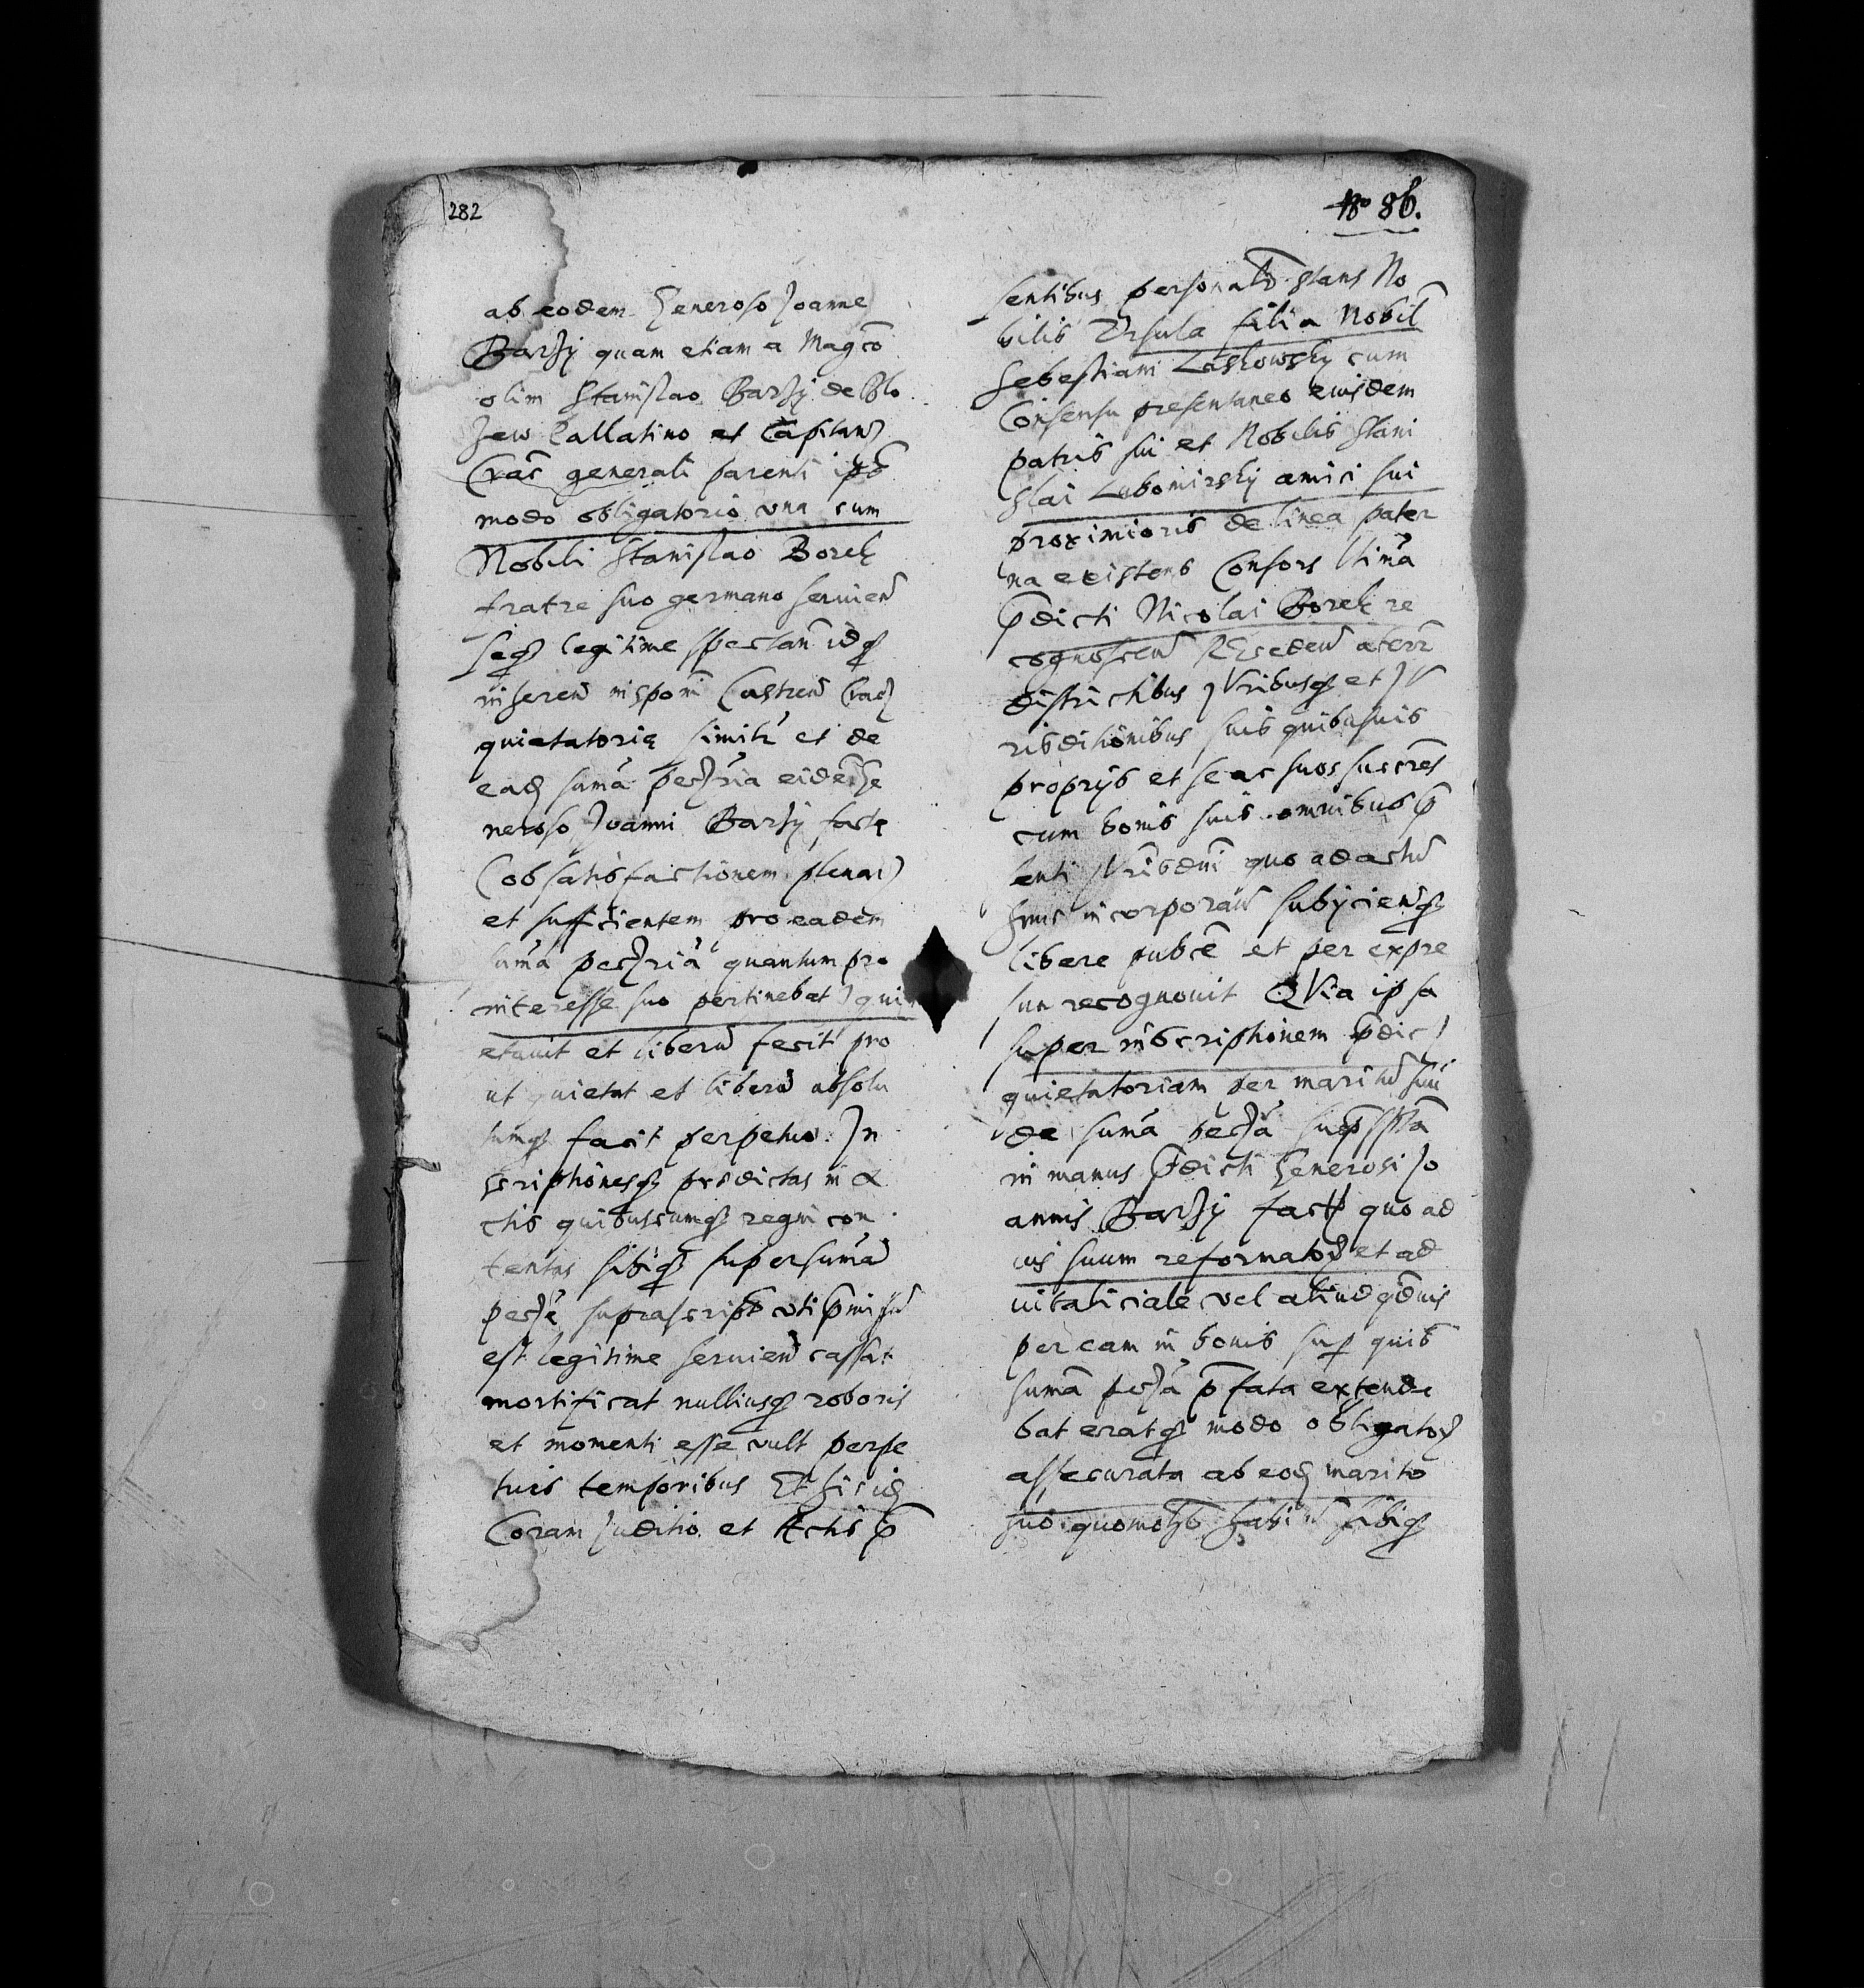 282
No 86.
ab eodem Generoso Joanne
Barzy quam etiam a Magco
olim Stanislao Barzy de Blo
zew Pallatino et Capitan
Crac generali parenti ipõ
modo obligatorio una cum
Nobili Stanislao Borek
fratre suo germano servien
seq legitime spectan idq
inseren inspom Castren Crac
quietatorię simili et de
ead suma pecria eidem Ge
neroso Joanni Barzy factę
(ob satisfactionem plenar)
et sufficientem pro eadem
suma pecria quantum pro
interesse suo pertinebat) qui
etavit et liberu fecit pro
ut quietat et liberu absolu
tumq facit perpetuo. In
scriptionesq prędictas in A
ctis quibuscunq regni con
tentas sibiq super suma
pecę suprascript uti pmissu
est legitime servien cassat
mortificat nulliusq roboris
et momenti esse vult perpe
tuis temporibus Et hic id
Coram Juditio et Actis p
sentibus personalr stans No
bilis Ursula filia Nobil
Sebestiani Laskowsky cum
Consensu presentaneo eiusdem
patris sui et Nobilis Stani
slai Lubomirsky amici sui
proximioris de linea pater
na existens Consors ltima
pdicti Nicolai Borek re
cognoscen Receden a terr
districtibus Juribusq et Ju
risditionibus suis quibusvis
proprijs et se ac suos succres
cum bonis suis omnibus p
senti Jurisdni quo ad actu
hunc incorporan subijcienq
libere pubce et per expre
sum recognovit Quia ipsa
super inscriptionem pdic
quietatoriam per maritu suu
de suma pecę supsspta
in manus pdicti Generosi Jo
annis Barzy fact quo ad
ius suum reformator et ad
vitaliciale vel aliud qdvis
per eam in bonis sup quib
suma pecę pfata extende
bat eratq modo obligator
assecurata ab eod marito
suo quomolt habit sibiq